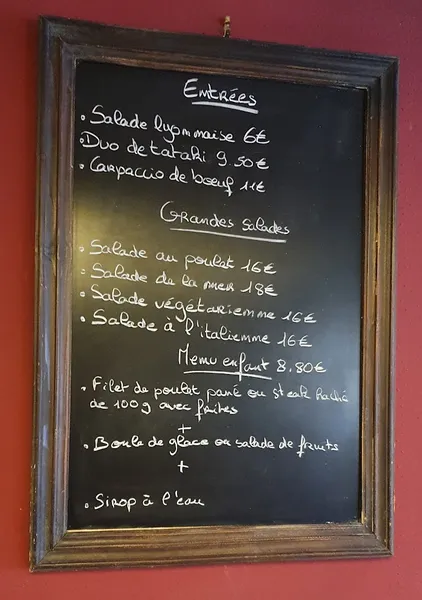 Entrées
. Salade lyonnaise 6€
. Duo de tataki 9.50€
. Carpaccio de boeuf 11€
Grandes Salades
. Salade au poulet 16€
. Salade de la mer 18€
. Salade végétarienne 16€
. Salade à l'italienne 16€
Menu enfant 8.80€
. Filet de poulet pané ou steak haché
de 100g avec frites
+
. Boule de glace ou salade de fruits
+
. Sirop à l'eau